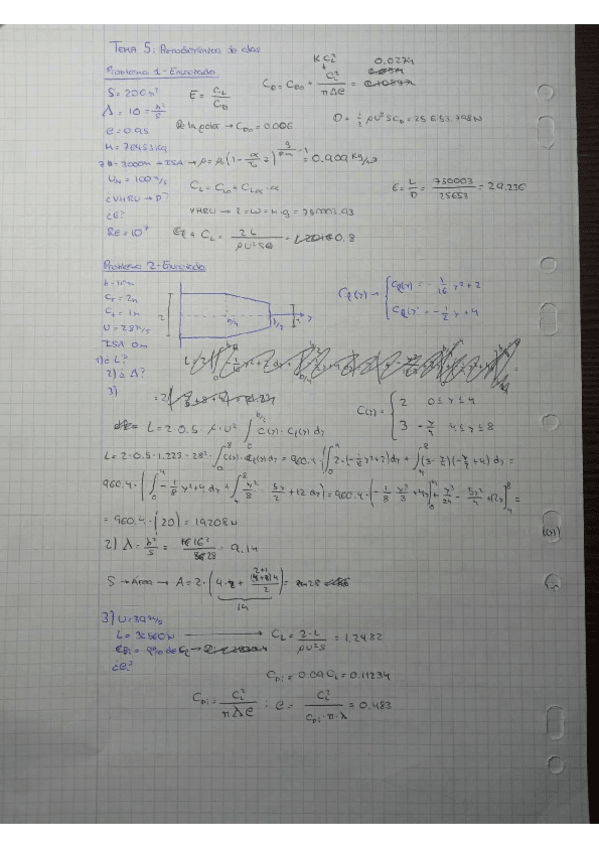 TEMA 5: Aerodinámica de alas
Problema 1 - Enunciado
S = 206 m²
E = C_L / C_D
K C_L²
C_D = C_D0 + C_L² / πΛe = 0.0274
Λ = 10 = b²/S
e = 0.95
De la polar → C_D0 = 0.006
D = 1/2 ρU²SC_D = 25653.798N
m = 76453 kg
h = 3000m → ISA → ρ = 0.909 kg/m³
U∞ = 100 m/s
C_L = C_L0 + C_Lα · α
E = L/D = 750003 / 25653 = 29.236
¿VHRU → D?
¿E?
VHRU → L = W = m·g = 750003.93
Re = 10⁴
C_L = 2L / ρU²S = 0.8
Problema 2 - Enunciado
C_r = 2m
C_t = 1m
ISA 0m
C_l(y) → { C_l(y) = - 1/16 y² + 2
C_l(y) = - 1/2 y + 4
1) ¿L?
2) ¿Λ?
3)
C(y) = { 2 0 ≤ y ≤ 4
3 - y/4 4 ≤ y ≤ 8
L = 2·0.5 ρ·U² ∫ C(y)·C_l(y) dy
L = 2·0.5·1.225·28² · ∫ C(y)·C_l(y) dy = 960.4 · ( ∫ 2·(-1/16 y²+2) dy + ∫ (3 - y/4)(-y/2 + 4) dy =
960.4 · ( ∫ - 1/8 y² + 4 dy + ∫ y²/8 - 5y/2 + 12 dy ) = 960.4 · ( - 1/8 y³/3 + 4y + y³/24 - 5y²/4 + 12y =
= 960.4 · (20) = 19208 N
2) Λ = b²/S = 16²/28 = 9.14
S → Área → A = 2 · ( 4·2 + (2+1)4 / 2 ) = 28
14
3) U = 39 m/s
C_L = 2·L / ρU²S = 1.2482
C_Di = 9% de C_L
¿e?
C_Di = 0.09 C_L = 0.11234
C_Di = C_L² / πΛe ; e = C_L² / C_Di·π·Λ = 0.483